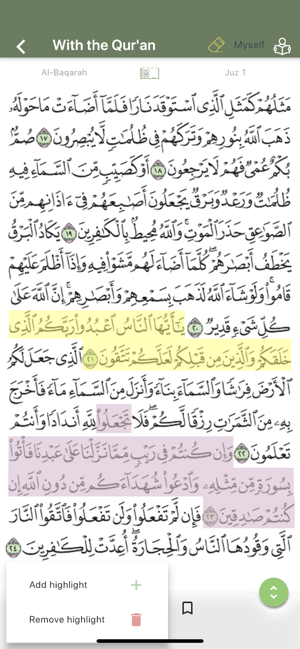 With the Qur'an
Myself
Al-Baqarah
Juz 1
مَثَلُهُمْ كَمَثَلِ ٱلَّذِى ٱسْتَوْقَدَ نَارًا فَلَمَّآ أَضَآءَتْ مَا حَوْلَهُۥ
ذَهَبَ ٱللَّهُ بِنُورِهِمْ وَتَرَكَهُمْ فِى ظُلُمَٰتٍ لَّا يُبْصِرُونَ ١٧ صُمٌّۢ
بُكْمٌ عُمْىٌ فَهُمْ لَا يَرْجِعُونَ ١٨ أَوْ كَصَيِّبٍ مِّنَ ٱلسَّمَآءِ فِيهِ
ظُلُمَٰتٌ وَرَعْدٌ وَبَرْقٌ يَجْعَلُونَ أَصَٰبِعَهُمْ فِىٓ ءَاذَانِهِم مِّنَ
ٱلصَّوَٰعِقِ حَذَرَ ٱلْمَوْتِ ۚ وَٱللَّهُ مُحِيطٌۢ بِٱلْكَٰفِرِينَ ١٩ يَكَادُ ٱلْبَرْقُ
يَخْطَفُ أَبْصَٰرَهُمْ ۖ كُلَّمَآ أَضَآءَ لَهُم مَّشَوْا۟ فِيهِ وَإِذَآ أَظْلَمَ عَلَيْهِمْ
قَامُوا۟ ۚ وَلَوْ شَآءَ ٱللَّهُ لَذَهَبَ بِسَمْعِهِمْ وَأَبْصَٰرِهِمْ ۚ إِنَّ ٱللَّهَ عَلَىٰ
كُلِّ شَىْءٍ قَدِيرٌ ٢٠ يَٰٓأَيُّهَا ٱلنَّاسُ ٱعْبُدُوا۟ رَبَّكُمُ ٱلَّذِى
خَلَقَكُمْ وَٱلَّذِينَ مِن قَبْلِكُمْ لَعَلَّكُمْ تَتَّقُونَ ٢١ ٱلَّذِى جَعَلَ لَكُمُ
ٱلْأَرْضَ فِرَٰشًا وَٱلسَّمَآءَ بِنَآءً وَأَنزَلَ مِنَ ٱلسَّمَآءِ مَآءً فَأَخْرَجَ
بِهِۦ مِنَ ٱلثَّمَرَٰتِ رِزْقًا لَّكُمْ ۖ فَلَا تَجْعَلُوا۟ لِلَّهِ أَندَادًا وَأَنتُمْ
تَعْلَمُونَ ٢٢ وَإِن كُنتُمْ فِى رَيْبٍ مِّمَّا نَزَّلْنَا عَلَىٰ عَبْدِنَا فَأْتُوا۟
بِسُورَةٍ مِّن مِّثْلِهِۦ وَٱدْعُوا۟ شُهَدَآءَكُم مِّن دُونِ ٱللَّهِ إِن
كُنتُمْ صَٰدِقِينَ ٢٣ فَإِن لَّمْ تَفْعَلُوا۟ وَلَن تَفْعَلُوا۟ فَٱتَّقُوا۟ ٱلنَّارَ
ٱلَّتِى وَقُودُهَا ٱلنَّاسُ وَٱلْحِجَارَةُ ۖ أُعِدَّتْ لِلْكَٰفِرِينَ ٢٤
Add highlight
Remove highlight